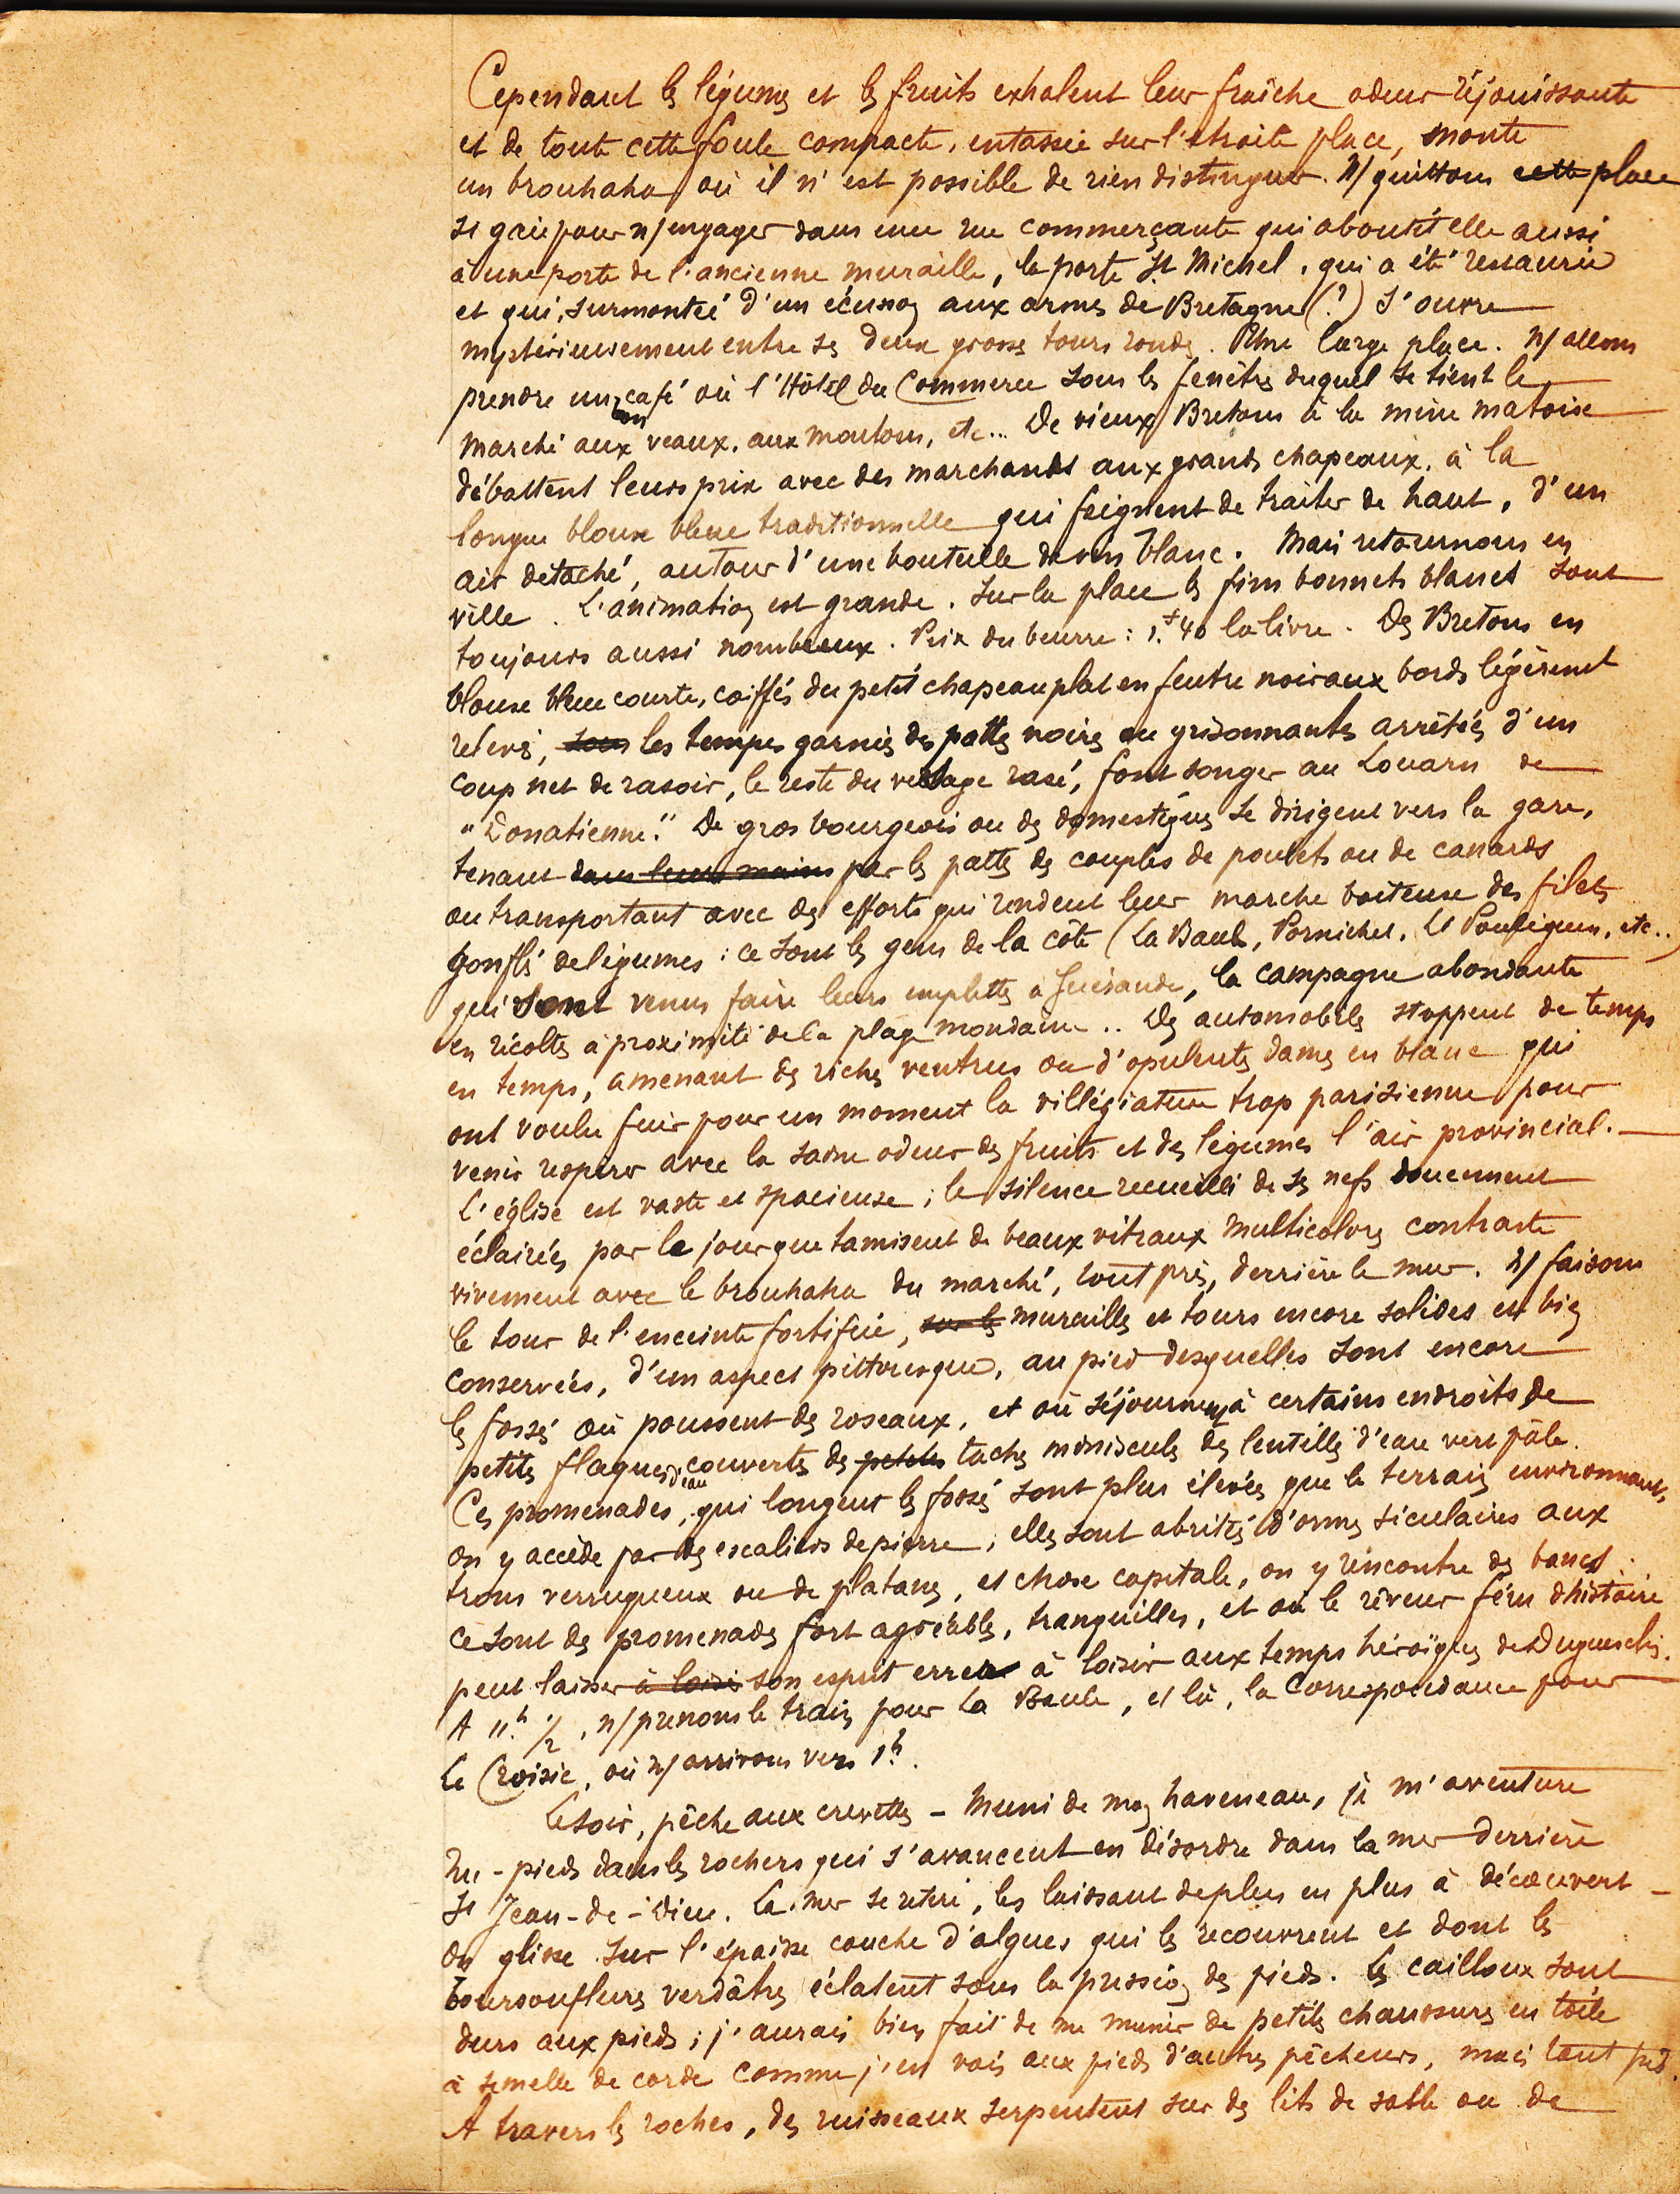 Cependant les légumes et les fruits exhalent leur fraîche odeur réjouissante
et de toute cette foule compacte, entassée sur l'étroite place, monte
un brouhaha où il n'est possible de rien distinguer. N/ quittons cette place
si gaie pour n/ engager dans une rue commerçante qui aboutit elle aussi
à une porte de l'ancienne muraille, la porte St Michel, qui a été restaurée
et qui, surmontée d'un écusson aux armes de Bretagne (?) s'ouvre
mystérieusement entre ses deux grosses tours rondes. Une large place. N/ allons
prendre un bon café où l'Hôtel du Commerce sous les fenêtres duquel se tient le
marché aux veaux, aux moutons, etc... De vieux Bretons à la mine matoise
débattent leurs prix avec des marchands aux grands chapeaux, à la
longue blouse bleue traditionnelle qui feignent de traiter de haut, d'un
air détaché, autour d'une bouteille de vin blanc. Mais retournons en
ville. L'animation est grande. Sur la place les fins bonnets blancs sont
toujours aussi nombreux. Prix du beurre : 1.f 40 la livre. Des Bretons en
blouse bleue courte, coiffés du petit chapeau plat en feutre noir aux bords légèremt
relevés, sous les tempes garnies des pattes noires ou grisonnantes arrêtées d'un
coup net de rasoir, le reste du visage rasé, font songer au Louarn de
"Donatienne." De gros bourgeois ou des domestiques se dirigent vers la gare,
tenant dans leurs mains par les pattes des couples de poulets ou de canards
ou transportant avec des efforts qui rendent leur marche boiteuse des filets
gonflés de légumes : ce sont les gens de la côte (La Baule, Pornichet, Le Pouliguen, etc..)
qui sont venus faire leurs emplettes à Guérande, la campagne abondante
en récoltes à proximité de la plage mondaine.. Des automobiles stoppent de temps
en temps, amenant des riches ventrus ou d'opulentes dames en blanc qui
ont voulu fuir pour un moment la villégiature trop parisienne pour
venir respirer avec la saine odeur des fruits et des légumes l'air provincial.
L'église est vaste et spacieuse ; le silence recueilli de ses nefs doucement
éclairées par le jour que tamisent de beaux vitraux multicolores contraste
vivement avec le brouhaha du marché, tout près, derrière le mur. N/ faisons
le tour de l'enceinte fortifiée, sur les murailles et tours encore solides et bien
conservées, d'un aspect pittoresque, au pied desquelles sont encore
les fossés où poussent des roseaux, et où séjournent à certains endroits de
petites flaques d'eau couvertes des petites taches miniscules des lentilles d'eau vert pâle.
Ces promenades, qui longent les fossés sont plus élevées que le terrain environnant,
on y accède par des escaliers de pierre ; elles sont abritées d'ormes séculaires aux
troncs verruqueux ou de platanes, et chose capitale, on y rencontre des bancs.
ce sont des promenades fort agréables, tranquilles, et où le rêveur féru d'histoire
peut laisser à loisir son esprit errer à loisir aux temps héroïques des Duguesclin.
A 11h 1/2, n/ prenons le train pour La Baule, et là, la correspondance pour
Le Croisic, où n/ arrivons vers 1h.
Le soir, pêche aux crevettes – Muni de mon haveneau, je m'aventure
nu-pieds dans les rochers qui s'avancent en désordre dans la mer derrière
St Jean-de-Dieu. La mer se retire, les laissant de plus en plus à découvert –
On glisse sur l'épaisse couche d'algues qui les recouvrent et dont les
boursouflures verdâtres éclatent sous la pression des pieds. Les cailloux sont
durs aux pieds ; j'aurais bien fait de me munir de petites chaussures en toile
à semelle de corde comme j'en vois aux pieds d'autres pêcheurs, mais tant pis.
A travers les roches, des ruisseaux serpentent sur des lits de sable ou de